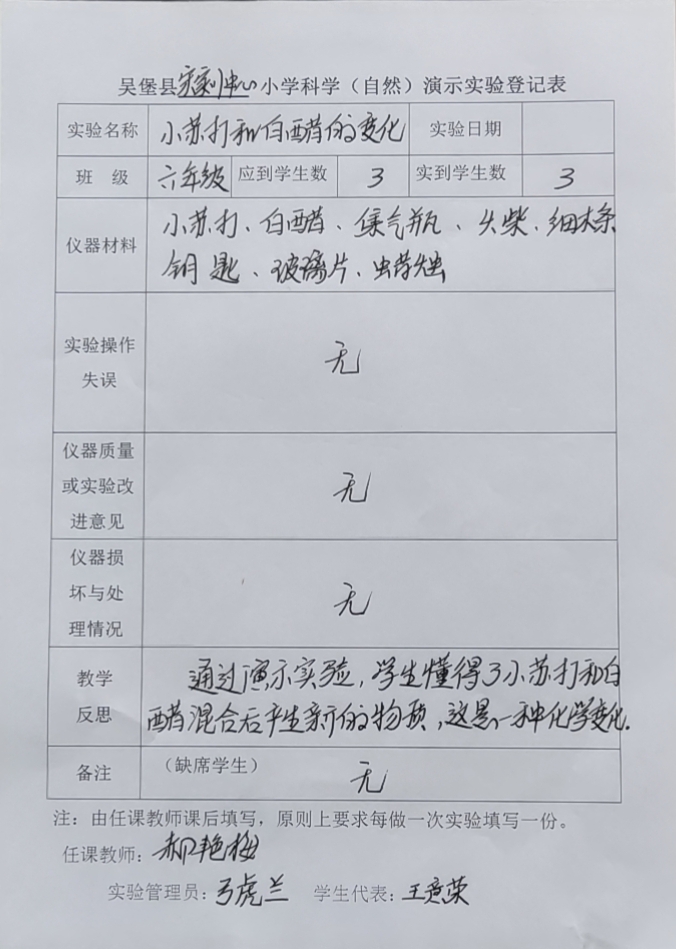 吴堡县宋家川中心小学科学（自然）演示实验登记表
实验名称 小苏打和白醋的变化 实验日期
班 级 六年级 应到学生数 3 实到学生数 3
小苏打、白醋、集气瓶、火柴、细木条
仪器材料
钥匙、玻璃片、蜡烛
实验操作
失误
无
仪器质量
或实验改
进意见
无
仪器损
坏与处
理情况
无
教学
反思
通过演示实验，学生懂得了小苏打和白
醋混合后产生新的物质，这是一种化学变化.
备注 （缺席学生） 无
注：由任课教师课后填写，原则上要求每做一次实验填写一份。
任课教师：郝艳梅
实验管理员：弓虎兰 学生代表：王意荣